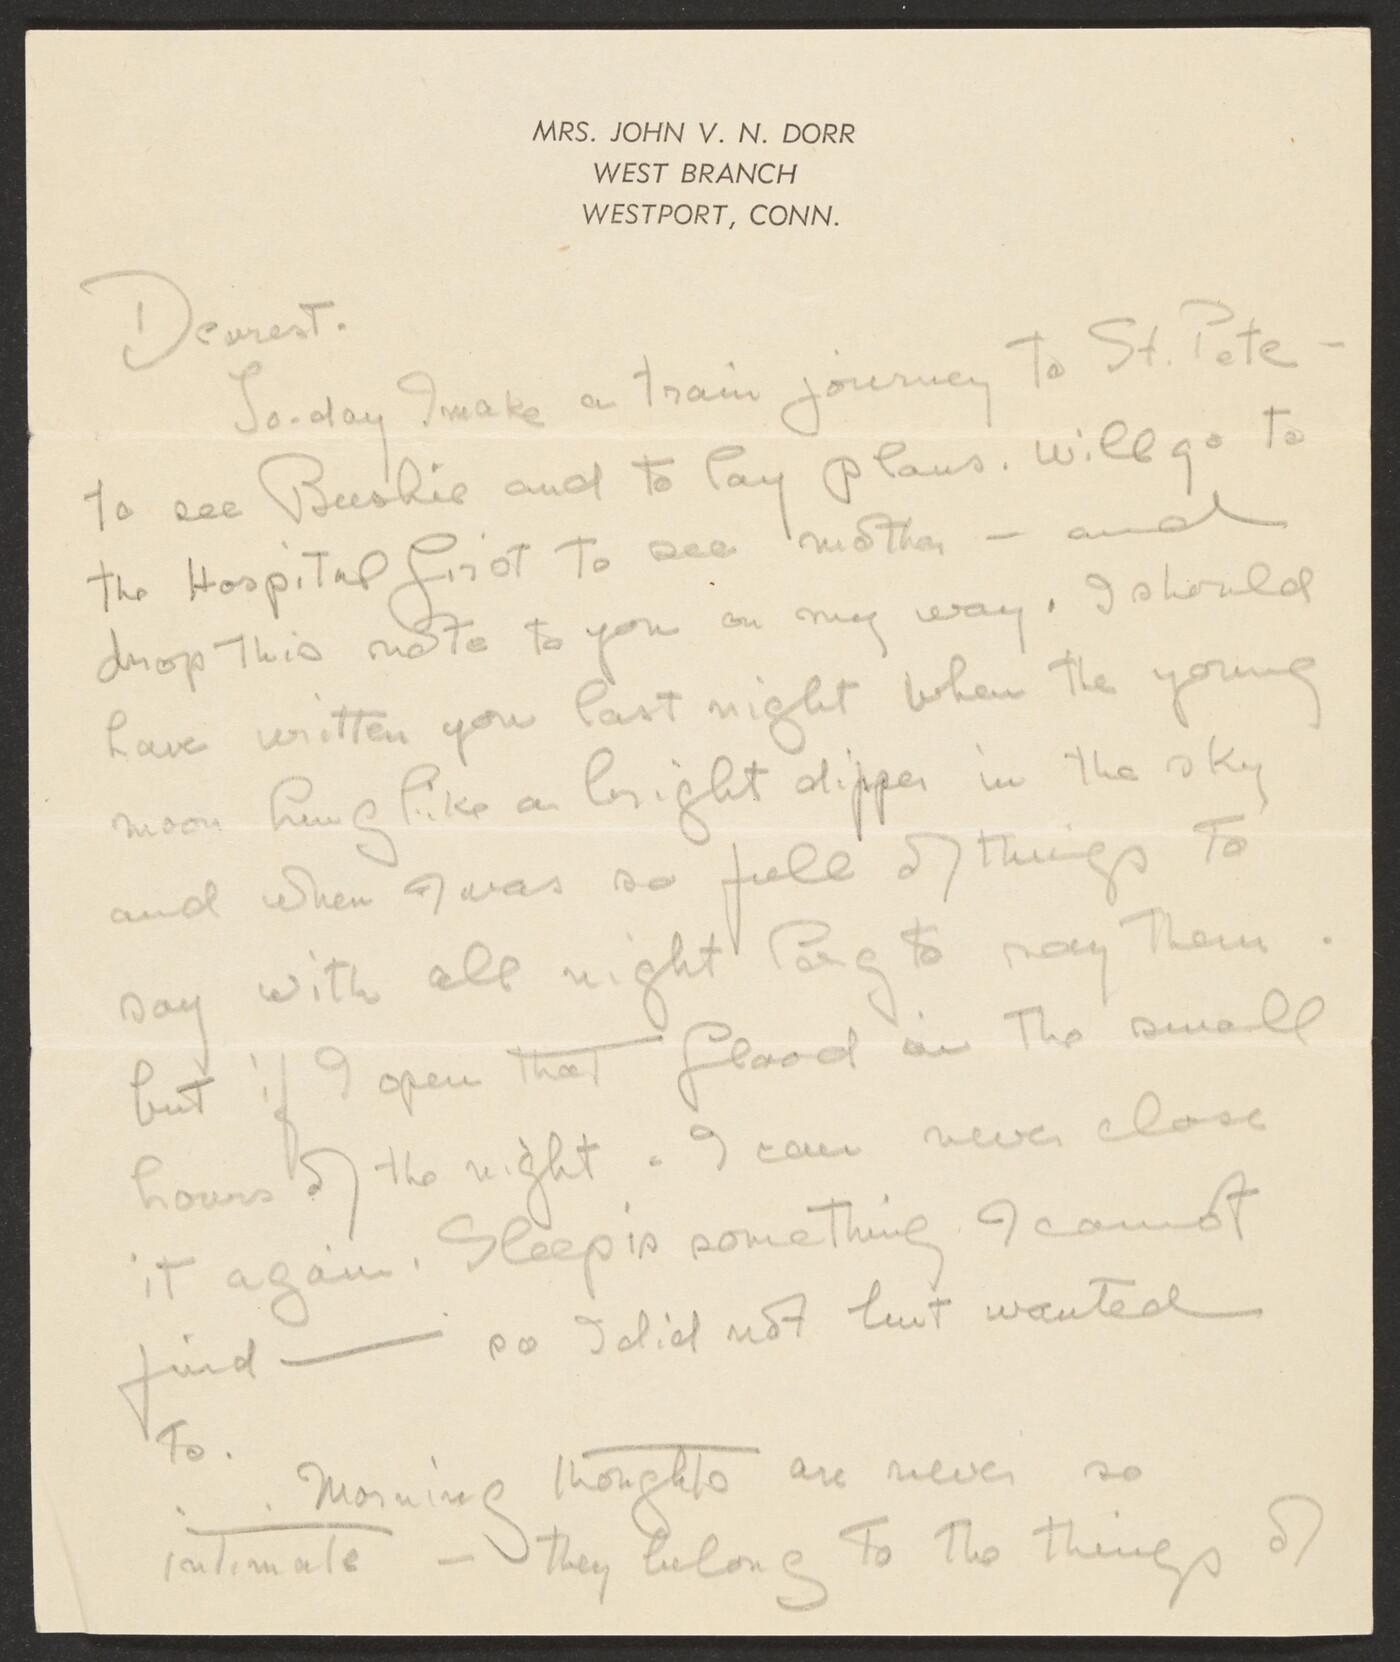 MRS. JOHN V. N. DORR
WEST BRANCH
WESTPORT, CONN.
Dearest.
To-day I make a train journey to St. Pete –
to see Bushie and to lay plans. Will go to
the Hospital first to see mother – and
drop this note to you on my way. I should
have written you last night when the young
moon hung like a bright dipper in the sky
and when I was so full of things to
say with all night long to say them.
but if I open that flood in the small
hours of the night. I can never close
it again. Sleep is something I cannot
find — so I did not but wanted
to.
. . Morning thoughts are never so
intimate – they belong to the things of